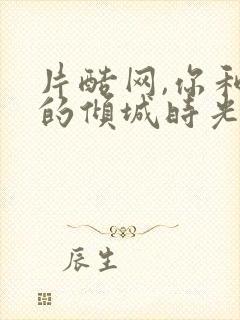 片酷网,你和
的倾城时光
辰生